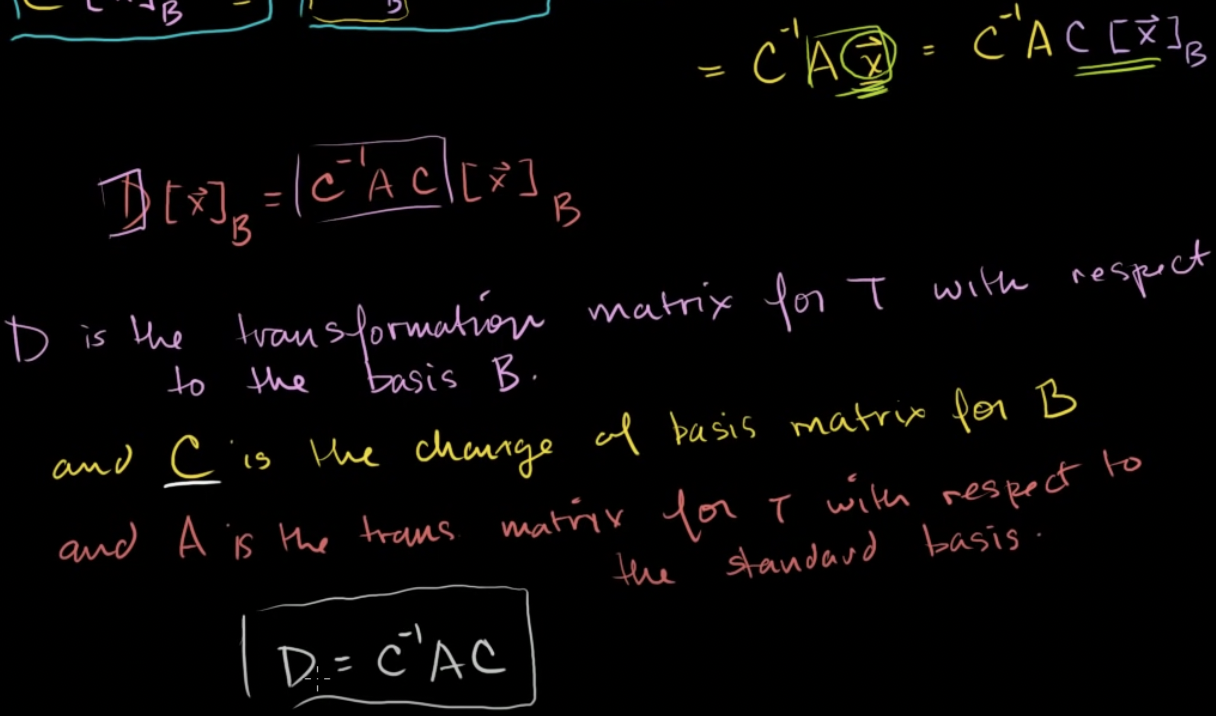 B
B
= C⁻¹ A x⃗ = C⁻¹ A C [x⃗]_B
D [x⃗]_B = C⁻¹ A C [x⃗]_B
D is the transformation matrix for T with respect
to the basis B.
and C is the change of basis matrix for B
and A is the trans matrix for T with respect to
the standard basis.
D = C⁻¹ A C